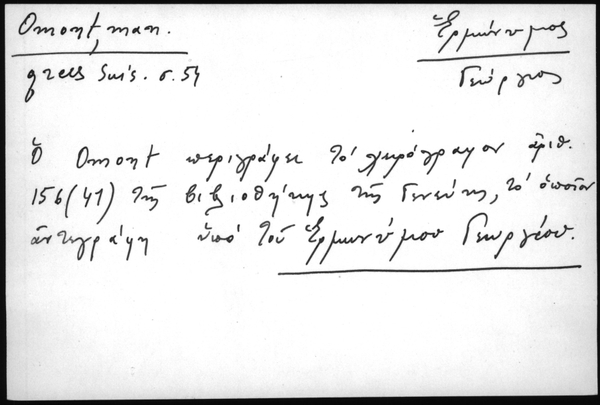 Omont, man.
Ἑρμώνυμος
grecs Suis. σ. 54
Γεώργιος
Ὁ Omont περιγράφει τό χειρόγραφον ἀριθ.
156 (41) τῆς βιβλιοθήκης τῆς Γενεύης, τό ὁποῖον
ἀντεγράφη ὑπό τοῦ Ἑρμωνύμου Γεωργίου.